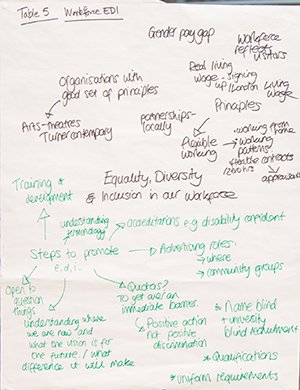 Table 5 Workforce EDI
Gender pay gap
Workforce
reflects
visitors
Real living
wage - signing
up London Living
wage
Organisations with
good set of principles
Arts - theatres
Turner contemporary
partnerships-
locally
Principles
Flexible
working
working from
home
working
patterns
flexible contracts
zero hrs
apprenticeships
Equality, Diversity
& Inclusion in our workforce
Training &
development
understanding
terminology
accreditations e.g disability confident
Steps to promote
e.d.i.
Advertising roles:
where
community groups
Open to
question
things
Quotas?
To get over an
immediate barrier.
Positive action
not positive
discrimination
understanding where
we are now and
what the vision is for
the future / what
difference it will make
* Name blind
+ university
blind recruitment
* Qualifications
* Uniform requirements